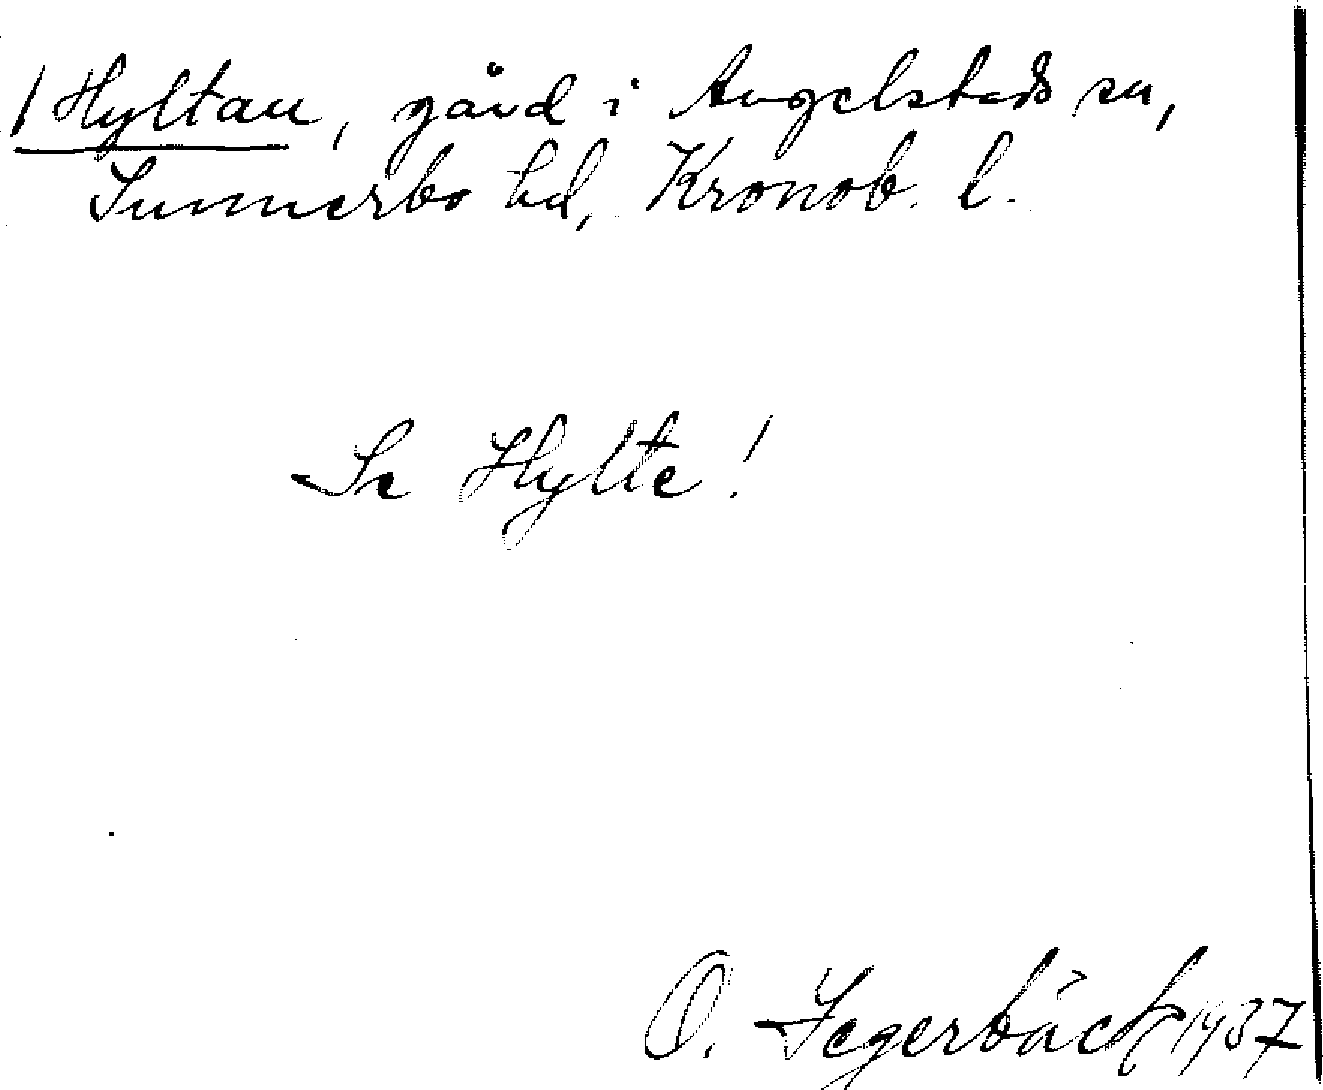 /Hyltan, gård i Angelstads sn,
Sunnerbo hd, Kronob. l.
Se Hylte!
O. Jegerbäck 1937